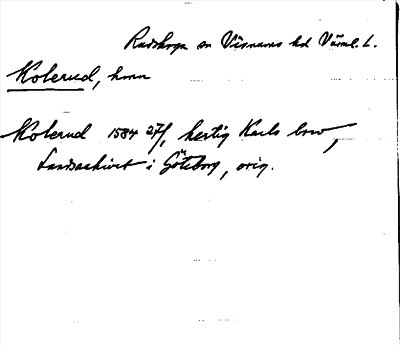 Rudskoga sn Visnums hd Värml. l.
Kolerud, hmn
Kolerud 1584 27/, hertig Karls brev,
Landsarkivet i Göteborg, orig.